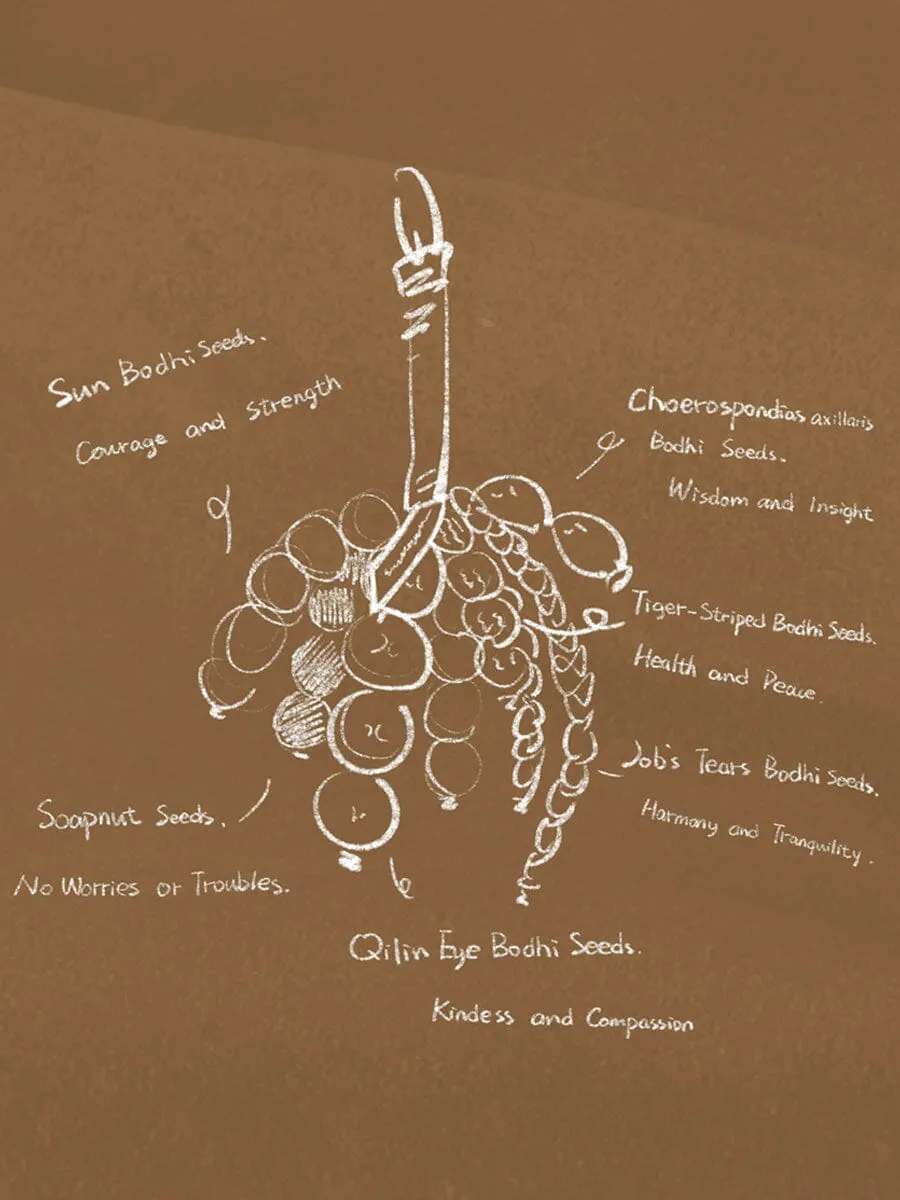 Sun Bodhi Seeds.
Courage and Strength
Choerospondias axillaris
Bodhi Seeds.
Wisdom and Insight
Tiger-Striped Bodhi Seeds.
Health and Peace.
Job's Tears Bodhi Seeds.
Harmony and Tranquility.
Soapnut Seeds.
No Worries or Troubles.
Qilin Eye Bodhi Seeds.
Kindess and Compassion